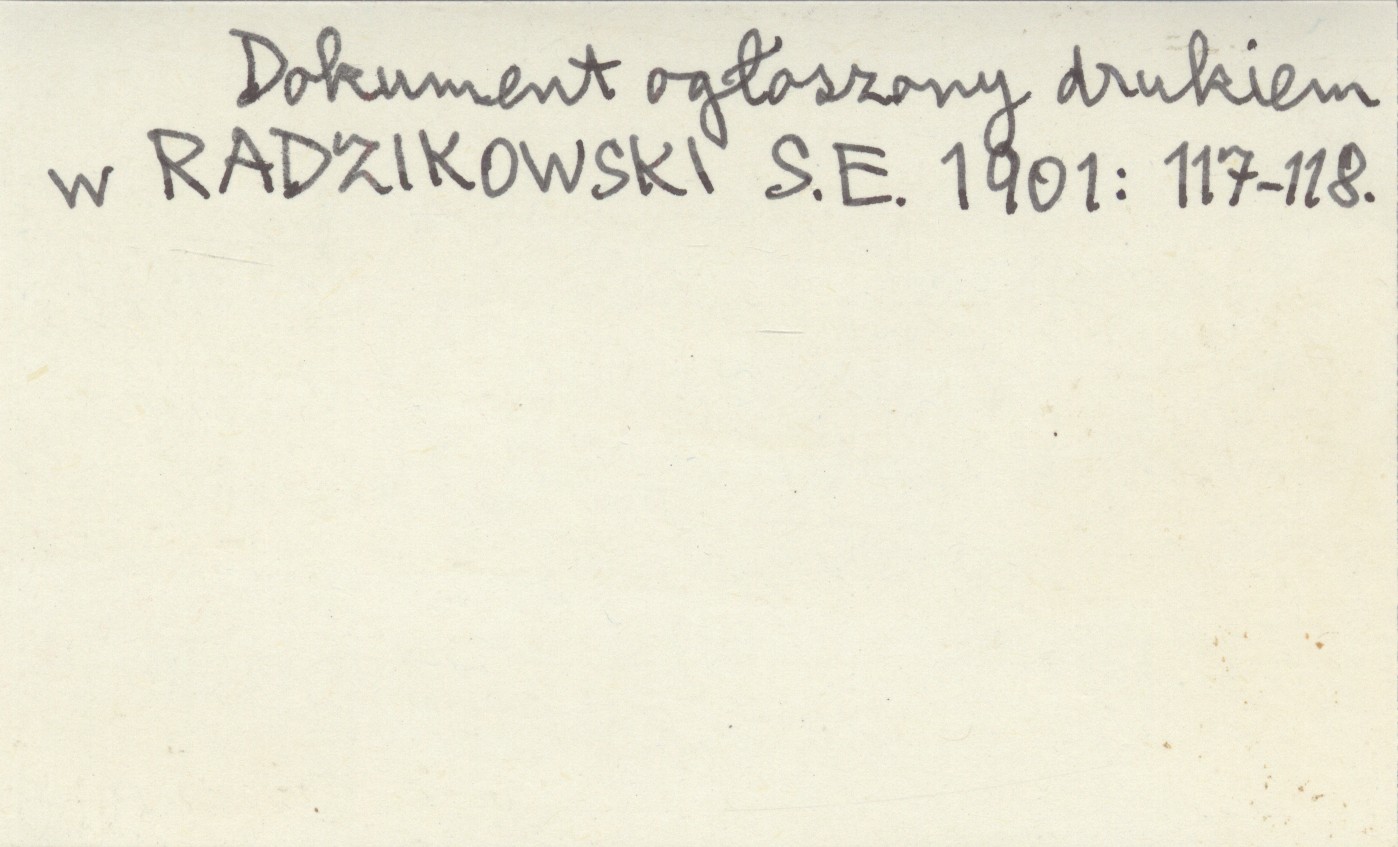 Dokument ogłoszony drukiem
w RADZIKOWSKI S.E. 1901: 117-118.